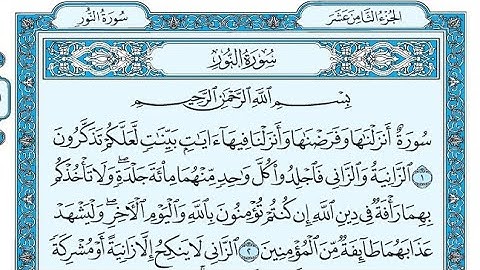 الجزء الثامن عشر سورة النور
سورة النور
بسم الله الرحمن الرحيم
سُورَةٌ أَنزَلْنَٰهَا وَفَرَضْنَٰهَا وَأَنزَلْنَا فِيهَآ ءَايَٰتٍۭ بَيِّنَٰتٍ لَّعَلَّكُمْ تَذَكَّرُونَ
١ ٱلزَّانِيَةُ وَٱلزَّانِى فَٱجْلِدُوا۟ كُلَّ وَٰحِدٍ مِّنْهُمَا مِا۟ئَةَ جَلْدَةٍ ۖ وَلَا تَأْخُذْكُم
بِهِمَا رَأْفَةٌ فِى دِينِ ٱللَّهِ إِن كُنتُمْ تُؤْمِنُونَ بِٱللَّهِ وَٱلْيَوْمِ ٱلْءَاخِرِ ۖ وَلْيَشْهَدْ
عَذَابَهُمَا طَآئِفَةٌ مِّنَ ٱلْمُؤْمِنِينَ ٢ ٱلزَّانِى لَا يَنكِحُ إِلَّا زَانِيَةً أَوْ مُشْرِكَةً